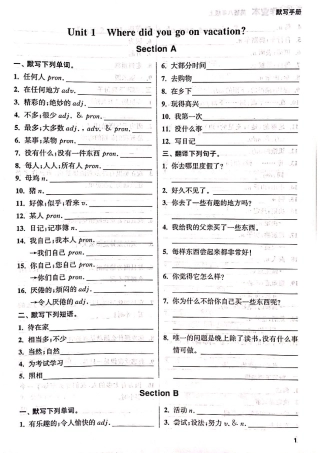 默写手册
Unit 1 Where did you go on vacation?
Section A
一、默写下列单词。
1. 任何人 pron.
2. 在任何地方 adv.
3. 精彩的;绝妙的 adj.
4. 不多;很少 adj. & pron.
5. 最多;大多数 adj., adv. & pron.
6. 某事;某物 pron.
7. 没有什么;没有一件东西 pron.
8. 每人;人人;所有人 pron.
9. 母鸡 n.
10. 猪 n.
11. 好像;似乎;看来 v.
12. 某人 pron.
13. 日记;记事簿 n.
14. 我自己;我本人 pron.
→我们自己 pron.
15. 你自己;您自己 pron.
→你们自己 pron.
16. 厌倦的;烦闷的 adj.
→令人厌倦的 adj.
二、默写下列短语。
1. 待在家
2. 相当多;不少
3. 当然;自然
4. 为考试学习
5. 照相
6. 大部分时间
7. 去购物
8. 在乡下
9. 玩得高兴
10. 出去
11. 没什么事
12. 写日记
三、翻译下列句子。
1. 你去哪里度假了?
2. 好久不见了。
3. 你去了一些有趣的地方吗?
4. 我给我的父亲买了一些东西。
5. 每样东西尝起来都很美味!
6. 你觉得它怎么样?
7. 你为什么不给你自己买一些东西呢?
8. 唯一的问题是晚上除了读书,没有什么事
情可做。
Section B
一、默写下列单词。
1. 有乐趣的;令人愉快的 adj.
2. 活动 n.
3. 尝试;设法;努力 v. & n.
1